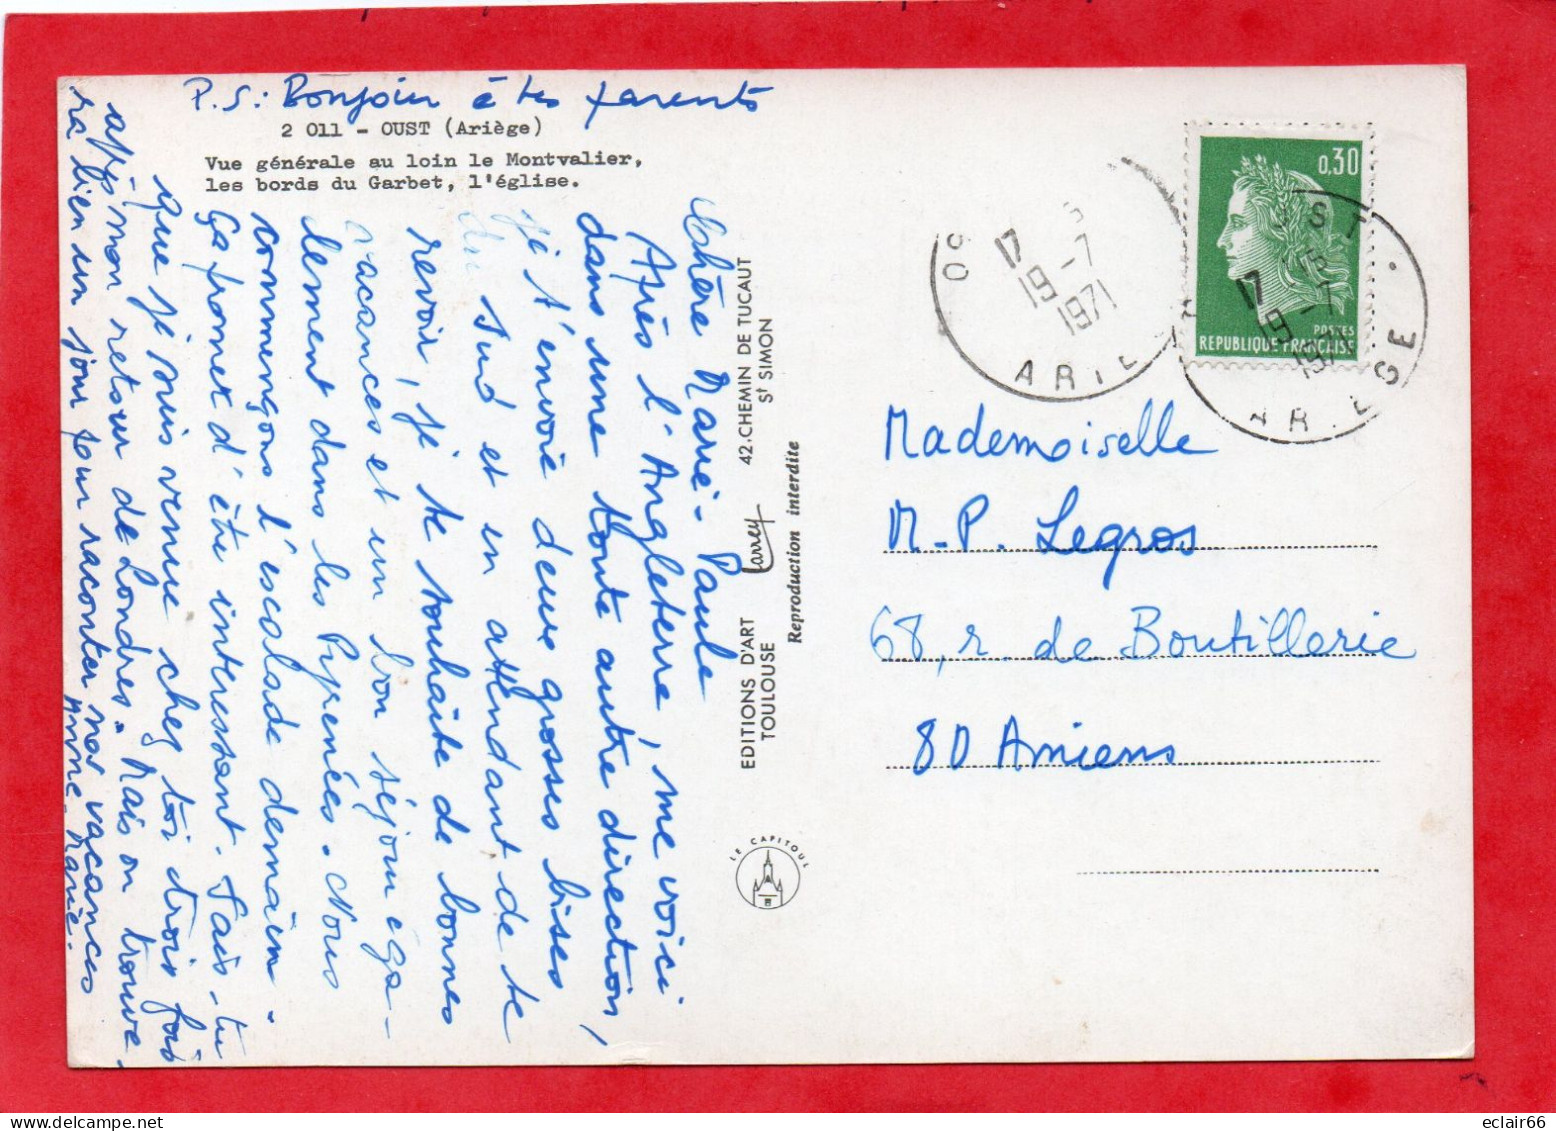 P.S: Bonjour à tes parents
2 011 - OUST (Ariège)
Vue générale au loin le Montvalier,
les bords du Garbet, l'église.
Chère Marie-Paule
Après l'Angleterre, me voici
dans une toute autre direction,
je t'envoie deux grosses bises
du Sud et en attendant de te
revoir, je te souhaite de bonnes
vacances et un bon séjour éga-
lement dans les Pyrénées. Nous
commençons l'escalade demain.
Ça promet d'être intéressant. Sais-tu
que je suis venue chez toi trois fois
après mon retour de Londres. Mais on trouve-
ra bien un jour pour raconter nos vacances
Anne-Marie.
EDITIONS D'ART Larrey 42.CHEMIN DE TUCAUT
TOULOUSE St SIMON
Reproduction interdite
LE CAPITOLE
0,30
POSTES
REPUBLIQUE FRANÇAISE
17
19-7
1971
ARIE
UST
17
19-7
1971
AR EGE
Mademoiselle
M-P. Legros
68, r. de Boutillerie
80 Amiens
eclair66